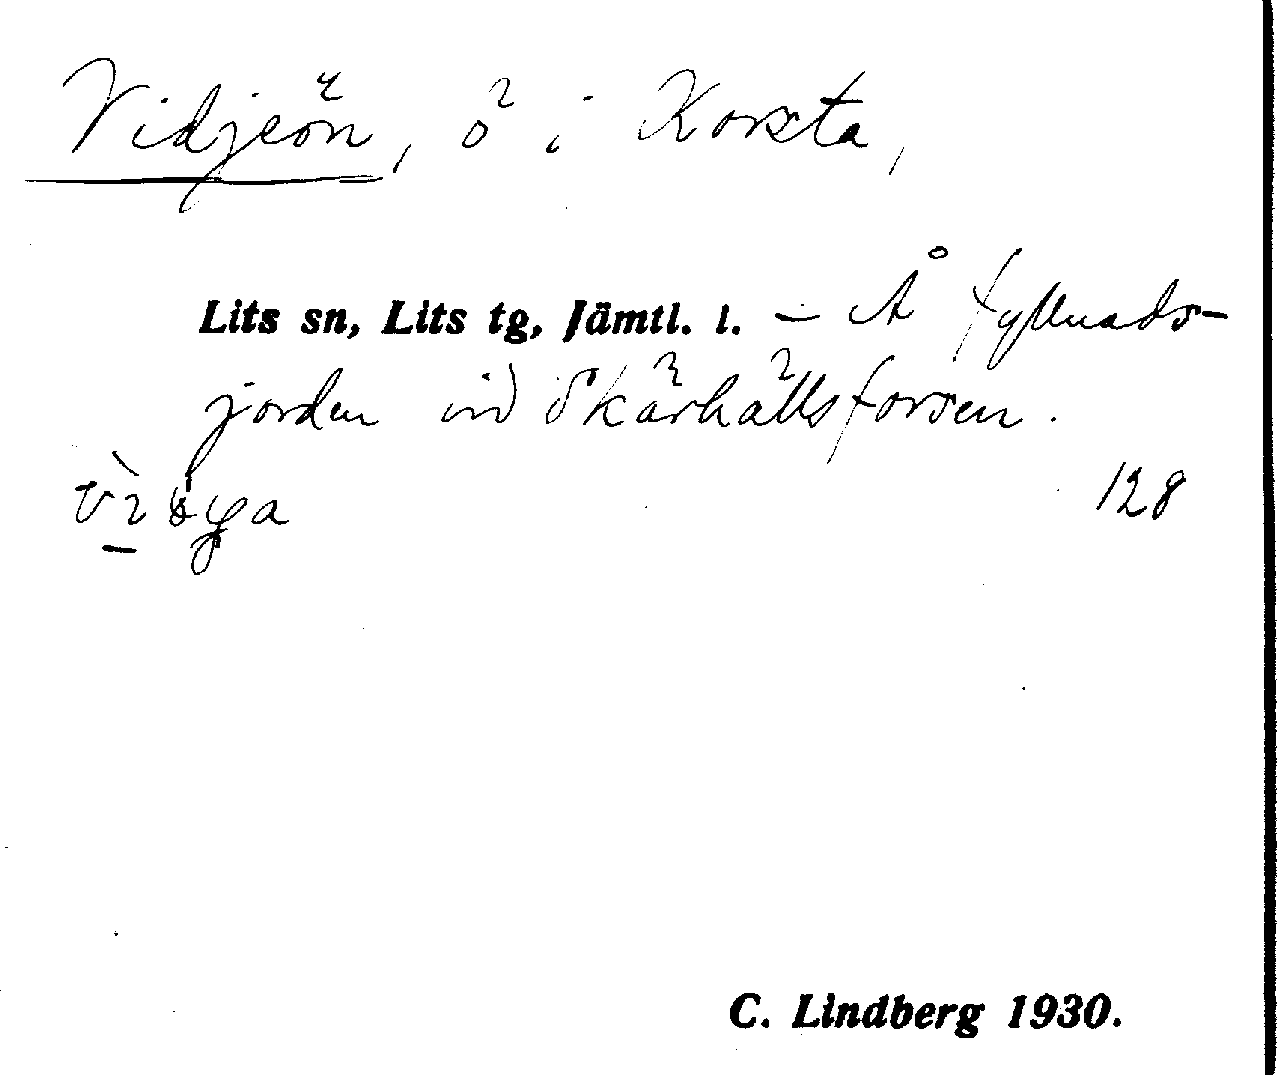 Vidjeön, ö i Korsta,
Lits sn, Lits tg, Jämtl. l. — Å fyllnads-
jorden vid Skärhällsforsen.
128
C. Lindberg 1930.